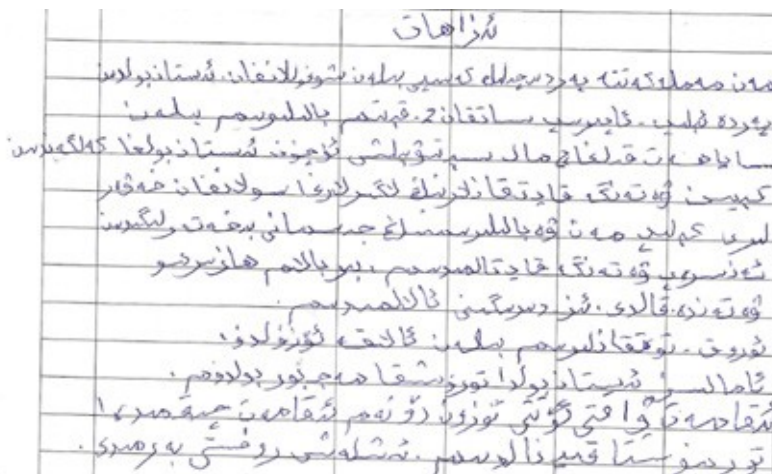 ئىزاھات
مەن مەملەكەتتە پەردىچىلىك كەسپى بىلەن شۇغۇللانغان. ئىستانبولدىن
پەردە ئېلىپ. ئاپىرىپ ساتقان 2. قېتىم بالىلىرىم بىلەن
ساياھەت قىلغاچ مال سېتىۋېلىش ئۈچۈن ئىستانبولغا كەلگەندىن
كېيىن ۋەتەنگە قايتقانلارنىڭ لاگىرلارغا سولانغان خەۋەر
لىرى كېلىپ مەن ۋە بالىلىرىمنىڭ جىسمانى بىخەتەرلىگىدىن
ئەنسىرەپ ۋەتەنگە قايتالمىدىم. بىر بالام ھازىرمۇ
ۋەتەندە قالدى. ئىز دېرىگىنى ئالالمىدىم.
ئۇرۇق. تۇققانلىرىم بىلەن ئالاقە ئۈزۈلدى.
ئامالسىز ئىستانبولدا تۇرۇشقا مەجبۇر بولدۇم.
ئىقامەت ۋاقتى ئۇزۇن ئىقامەت چىقمىدى
ئىشلەش روخسىتى بەرمىدى.